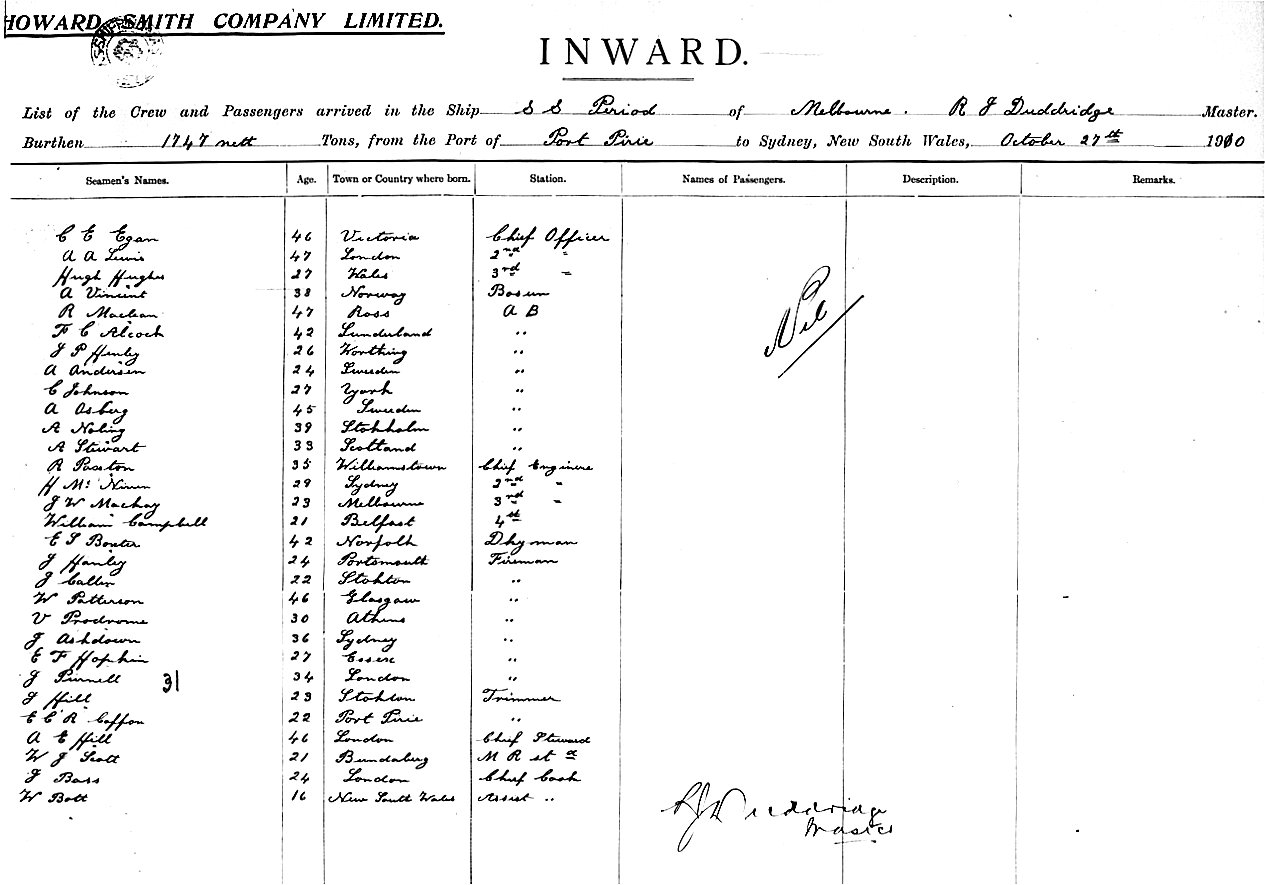 HOWARD SMITH COMPANY LIMITED.
INWARD.
List of the Crew and Passengers arrived in the Ship S S Period of Melbourne. R J Duddridge Master.
Burthen 1747 nett Tons, from the Port of Port Pirie to Sydney, New South Wales, October 27th 1910
Seamen's Names. Age. Town or Country where born. Station. Names of Passengers. Description. Remarks.
C E Egan 46 Victoria Chief Officer
A A Lewis 47 London 2nd "
Hugh Hughes 27 Wales 3rd "
A Vincent 38 Norway Bosun
R Maclean 47 Ross A B
Nil
F C Alcock 42 Sunderland "
J P Henley 26 Worthing "
A Andersen 24 Sweden "
C Johnson 27 York "
A Asberg 45 Sweden "
A Noling 39 Stokholm "
A Stewart 33 Scotland "
R Paxton 35 Williamstown Chief Enginere
H Mc Niven 29 Sydney 2nd "
J W Mackay 23 Melbourne 3rd "
William Campbell 21 Belfast 4th
E S Boxter 42 Norfolk Dkyman
J Hanley 24 Portsmouth Fireman
J 22 Stokton "
W Patterson 46 Glasgow "
V Prodrome 30 Athens "
J Ashdown 36 Sydney "
E F Hopkin 27 Essex "
J Purnell 34 London "
31
J Hill 23 Stokton Trimmer
E C R 22 Port Pirie "
A E Hill 46 London Chief Steward
W J Scott 21 Bundaberg M R st d
J Bass 24 London Chief Cook
W Bott 16 New South Wales Assist "
R J Duddridge
Master